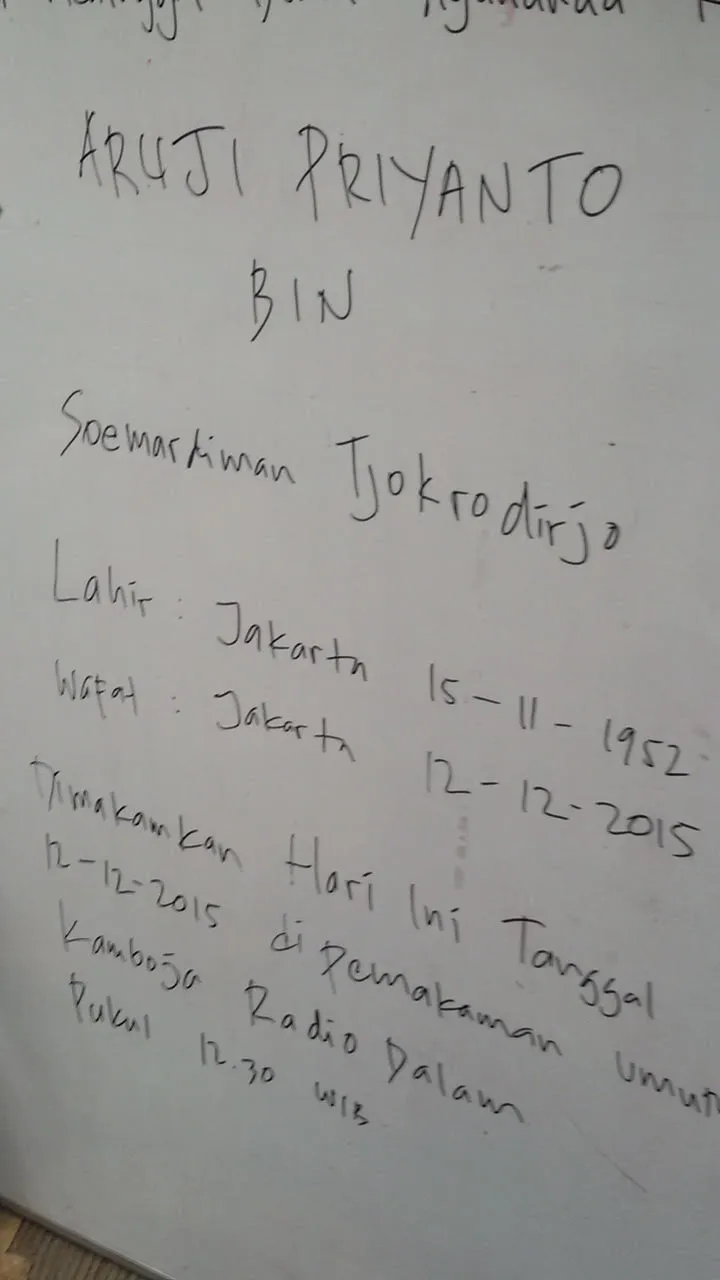 ARUJI PRIYANTO
BIN
Soemartiman Tjokrodirjo
Lahir : Jakarta 15-11-1952
Wafat : Jakarta 12-12-2015
Dimakamkan Hari Ini Tanggal
12-12-2015 di Pemakaman Umum
Kamboja Radio Dalam
Pukul 12.30 WIB